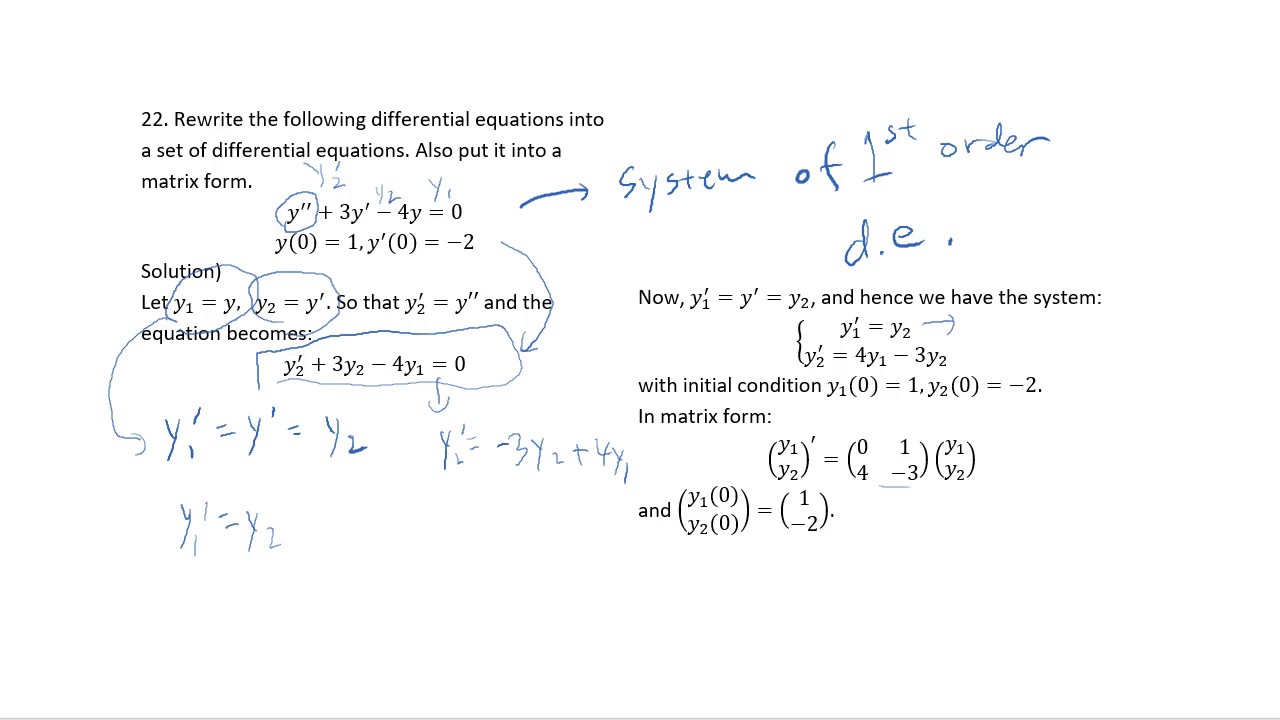 22. Rewrite the following differential equations into
a set of differential equations. Also put it into a
matrix form.
y₂′ y₂ y₁
y′′ + 3y′ − 4y = 0
y(0) = 1, y′(0) = −2
Solution)
Let y₁ = y, y₂ = y′. So that y₂′ = y′′ and the
equation becomes:
y₂′ + 3y₂ − 4y₁ = 0
y₁′ = y′ = y₂
y₂′ = -3y₂ + 4y₁
y₁′ = y₂
→ system of 1st order
d.e.
Now, y₁′ = y′ = y₂, and hence we have the system:
{ y₁′ = y₂ →
y₂′ = 4y₁ − 3y₂
with initial condition y₁(0) = 1, y₂(0) = −2.
In matrix form:
(y₁ y₂)′ = (0 1 4 −3)(y₁ y₂)
and (y₁(0) y₂(0)) = (1 −2).